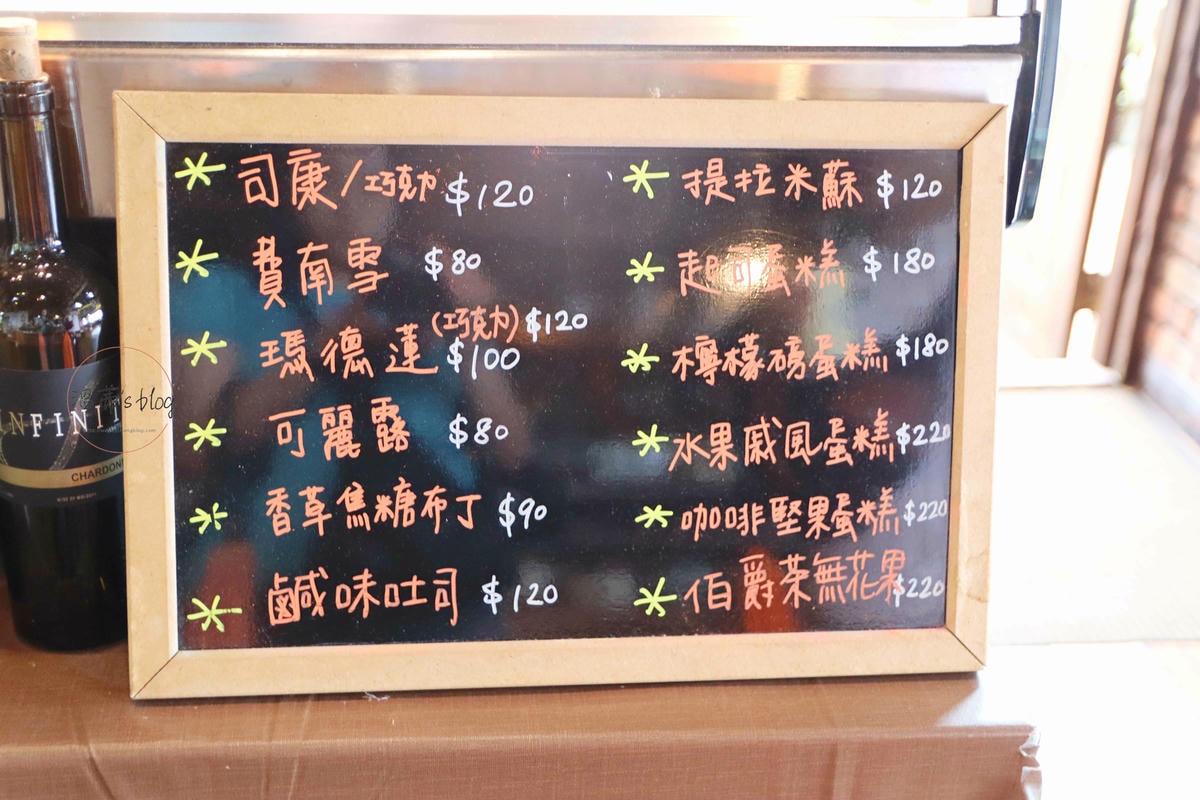 司康/巧克力 $120
費南雪 $80
(巧克力) $120
瑪德蓮 $100
可麗露 $80
香草焦糖布丁 $90
鹹味吐司 $120
提拉米蘇 $120
起司蛋糕 $180
檸檬磅蛋糕 $180
水果戚風蛋糕 $220
咖啡堅果蛋糕 $220
伯爵茶無花果 $220
INFINI
CHARDON
's blog